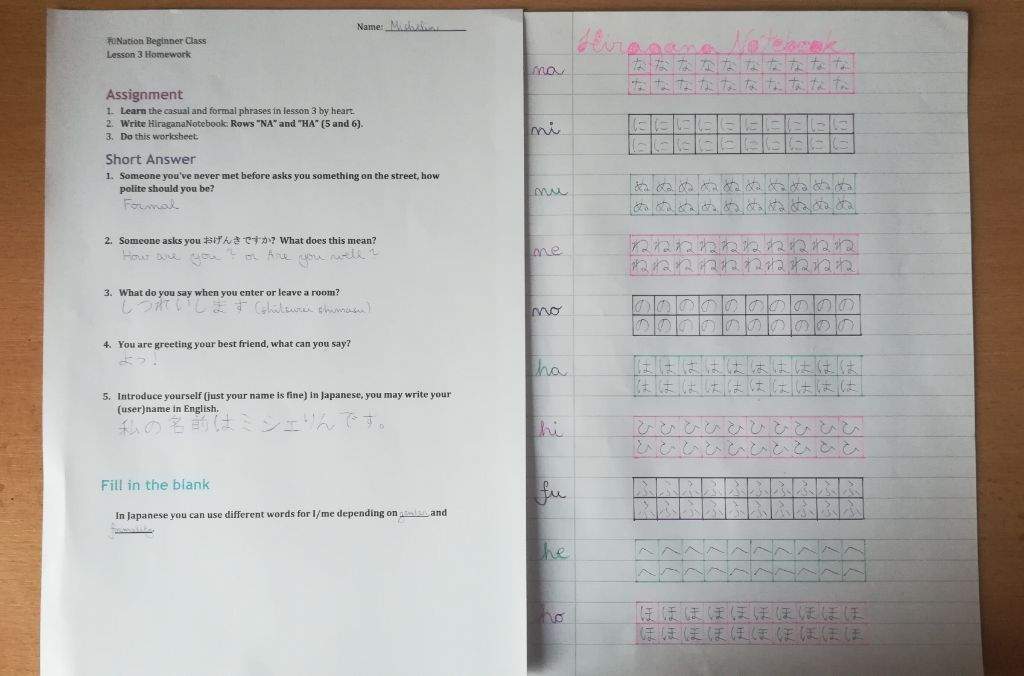 Name: Michelin
和Nation Beginner Class
Lesson 3 Homework
Assignment
1. Learn the casual and formal phrases in lesson 3 by heart.
2. Write HiraganaNotebook: Rows "NA" and "HA" (5 and 6).
3. Do this worksheet.
Short Answer
1. Someone you've never met before asks you something on the street, how
polite should you be?
Formal
2. Someone asks you おげんきですか? What does this mean?
How are you? or Are you well?
3. What do you say when you enter or leave a room?
しつれいします (shitsurei shimasu)
4. You are greeting your best friend, what can you say?
よっ!
5. Introduce yourself (just your name is fine) in Japanese, you may write your
(user)name in English.
私の名前はミシェりんです。
Fill in the blank
In Japanese you can use different words for I/me depending on gender and
formality.
Hiragana Notebook
na な な な な な な な な な な
な な な な な な な な な な
ni に に に に に に に に に に
に に に に に に に に に に
nu ぬ ぬ ぬ ぬ ぬ ぬ ぬ ぬ ぬ ぬ
ぬ ぬ ぬ ぬ ぬ ぬ ぬ ぬ ぬ ぬ
ne ね ね ね ね ね ね ね ね ね ね
ね ね ね ね ね ね ね ね ね ね
no の の の の の の の の の の
の の の の の の の の の の
ha は は は は は は は は は は
は は は は は は は は は は
hi ひ ひ ひ ひ ひ ひ ひ ひ ひ ひ
ひ ひ ひ ひ ひ ひ ひ ひ ひ ひ
fu ふ ふ ふ ふ ふ ふ ふ ふ ふ ふ
ふ ふ ふ ふ ふ ふ ふ ふ ふ ふ
he へ へ へ へ へ へ へ へ へ へ
へ へ へ へ へ へ へ へ へ へ
ho ほ ほ ほ ほ ほ ほ ほ ほ ほ ほ
ほ ほ ほ ほ ほ ほ ほ ほ ほ ほ